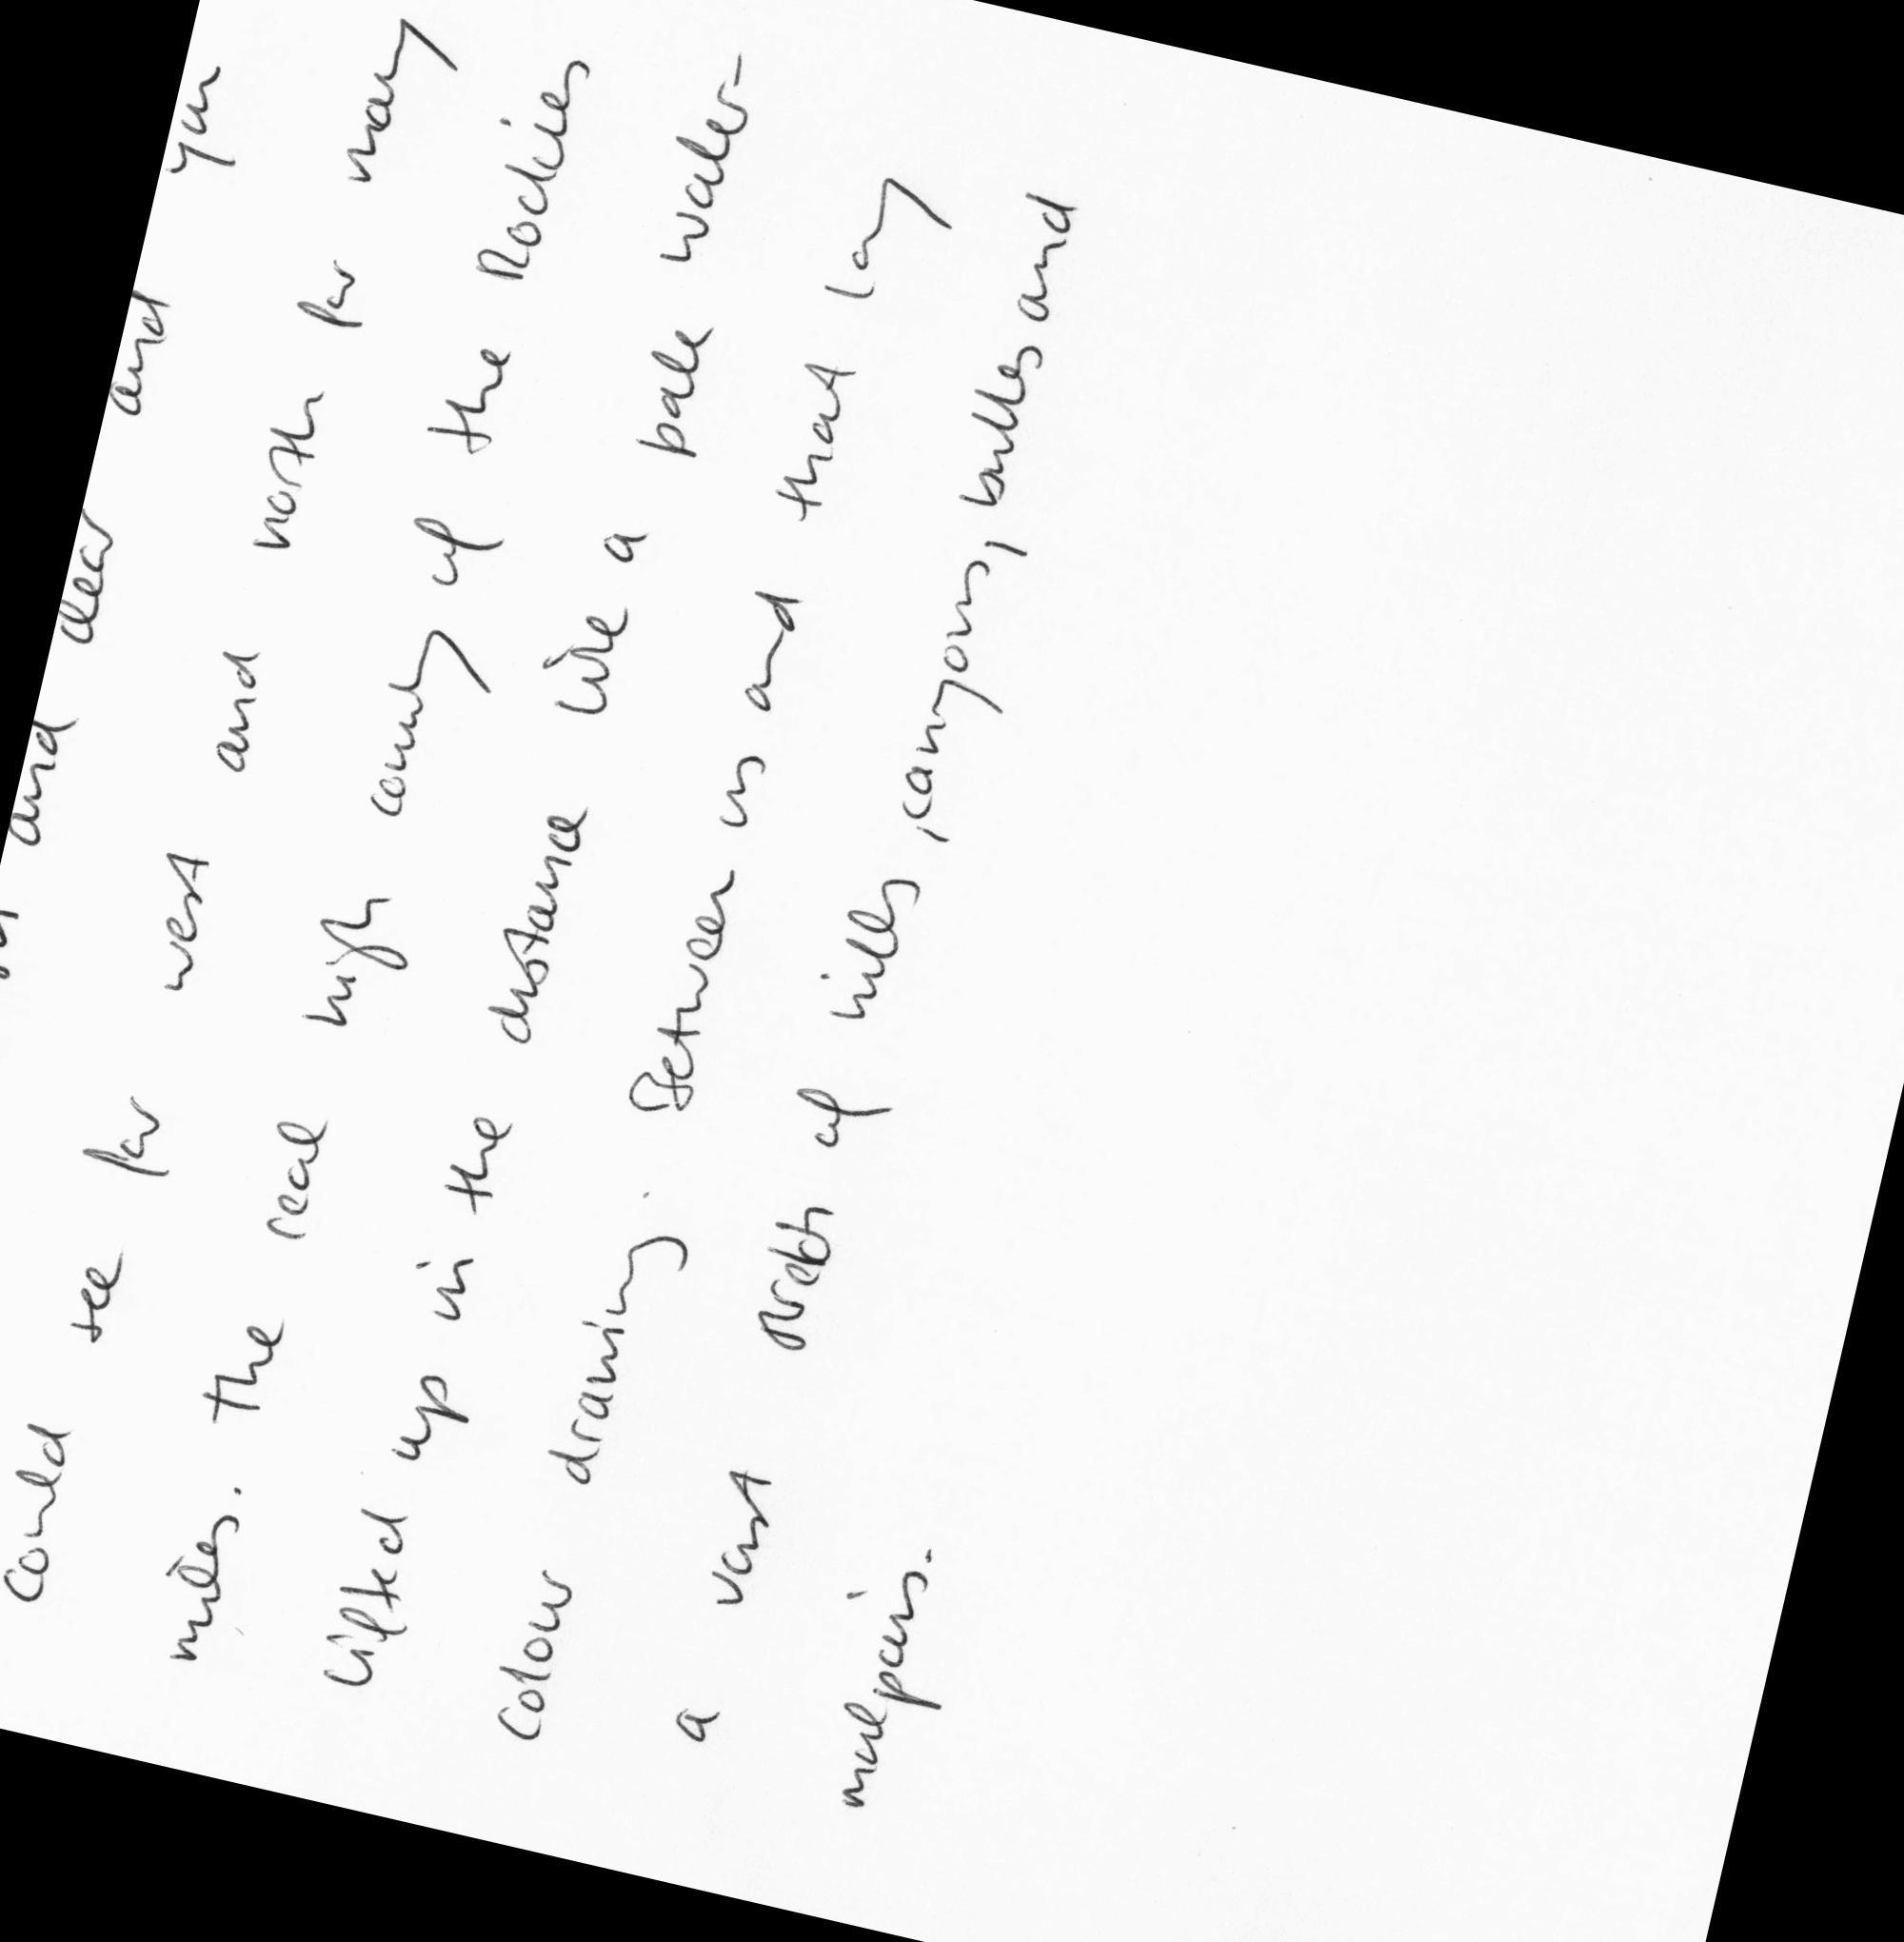 and clear and you
could see far west and north for many
miles. The real high country of the Rockies
lifted up in the distance like a pale water-
colour drawing. Between us and that lay
a vast stretch of hills, canyons, buttes and
malpais.